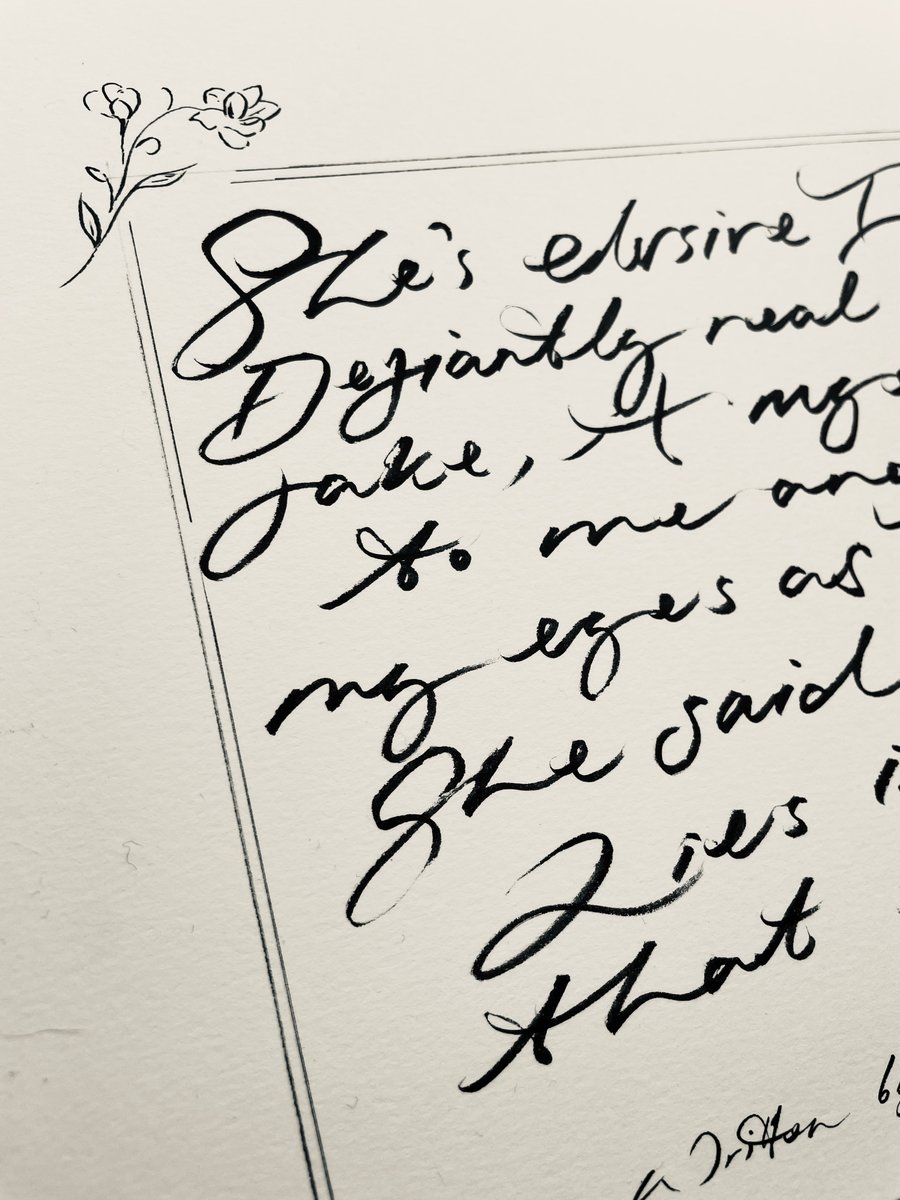 She's elusive I
Defiantly real
fake, A mys
to me any
my eyes as
She said
Lies i
that
written by